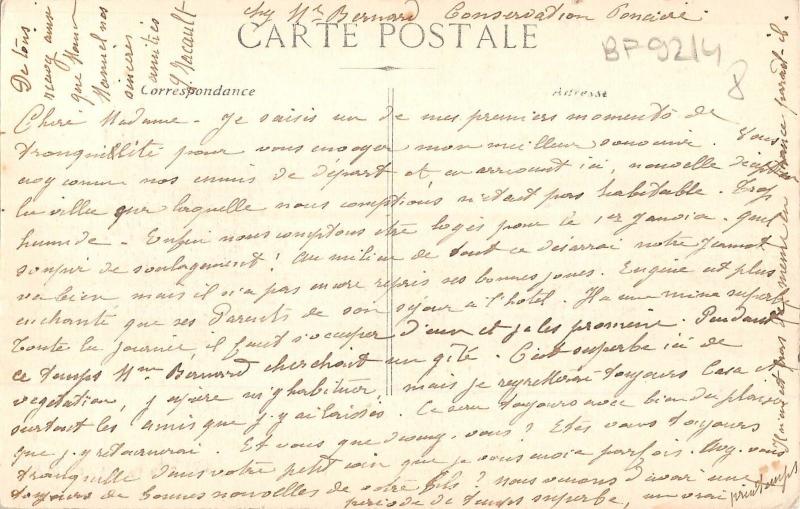 chez Mr Bernard Conservation Foncière
CARTE POSTALE
BF 92/4
8
Correspondance
Adresse
Chère Madame - Je saisis un de mes premiers moments de
tranquillité pour vous envoyer mon meilleur souvenir. Vous
comme nos ennuis de départ et en arrivant ici, nouvelle déception
la villa sur laquelle nous comptions n'était pas habitable. Trop
humide - Enfin nous comptons être logés pour le 1er Janvier. Quel
soupir de soulagement! Au milieu de tout ce désarroi notre Jeannot
va bien mais il n'a pas encore repris ses bonnes joues. Eugène est plus
enchanté que ses Parents de son séjour à l'hôtel. Il a une mine superbe
Toute la journée, il faut s'occuper d'eux et je les promène. Pendant
ce temps Mr Bernard cherchait un gîte. C'est superbe ici de
végétation, j'espère m'y habituer, mais je regretterai toujours Casa et
surtout les amis que j'y ai laissés. Ce sera toujours avec bien du plaisir
que j'y retournerai. Et vous que devenez-vous? Etes vous toujours
tranquille dans votre petit coin que je vous envie parfois. Avez-vous
toujours de bonnes nouvelles de votre fils? nous venons d'avoir une
période de temps superbe, un vrai
printemps
même en France paraît-il.
De tous
recevez ainsi
que Maman
nos
sincères
amitiés